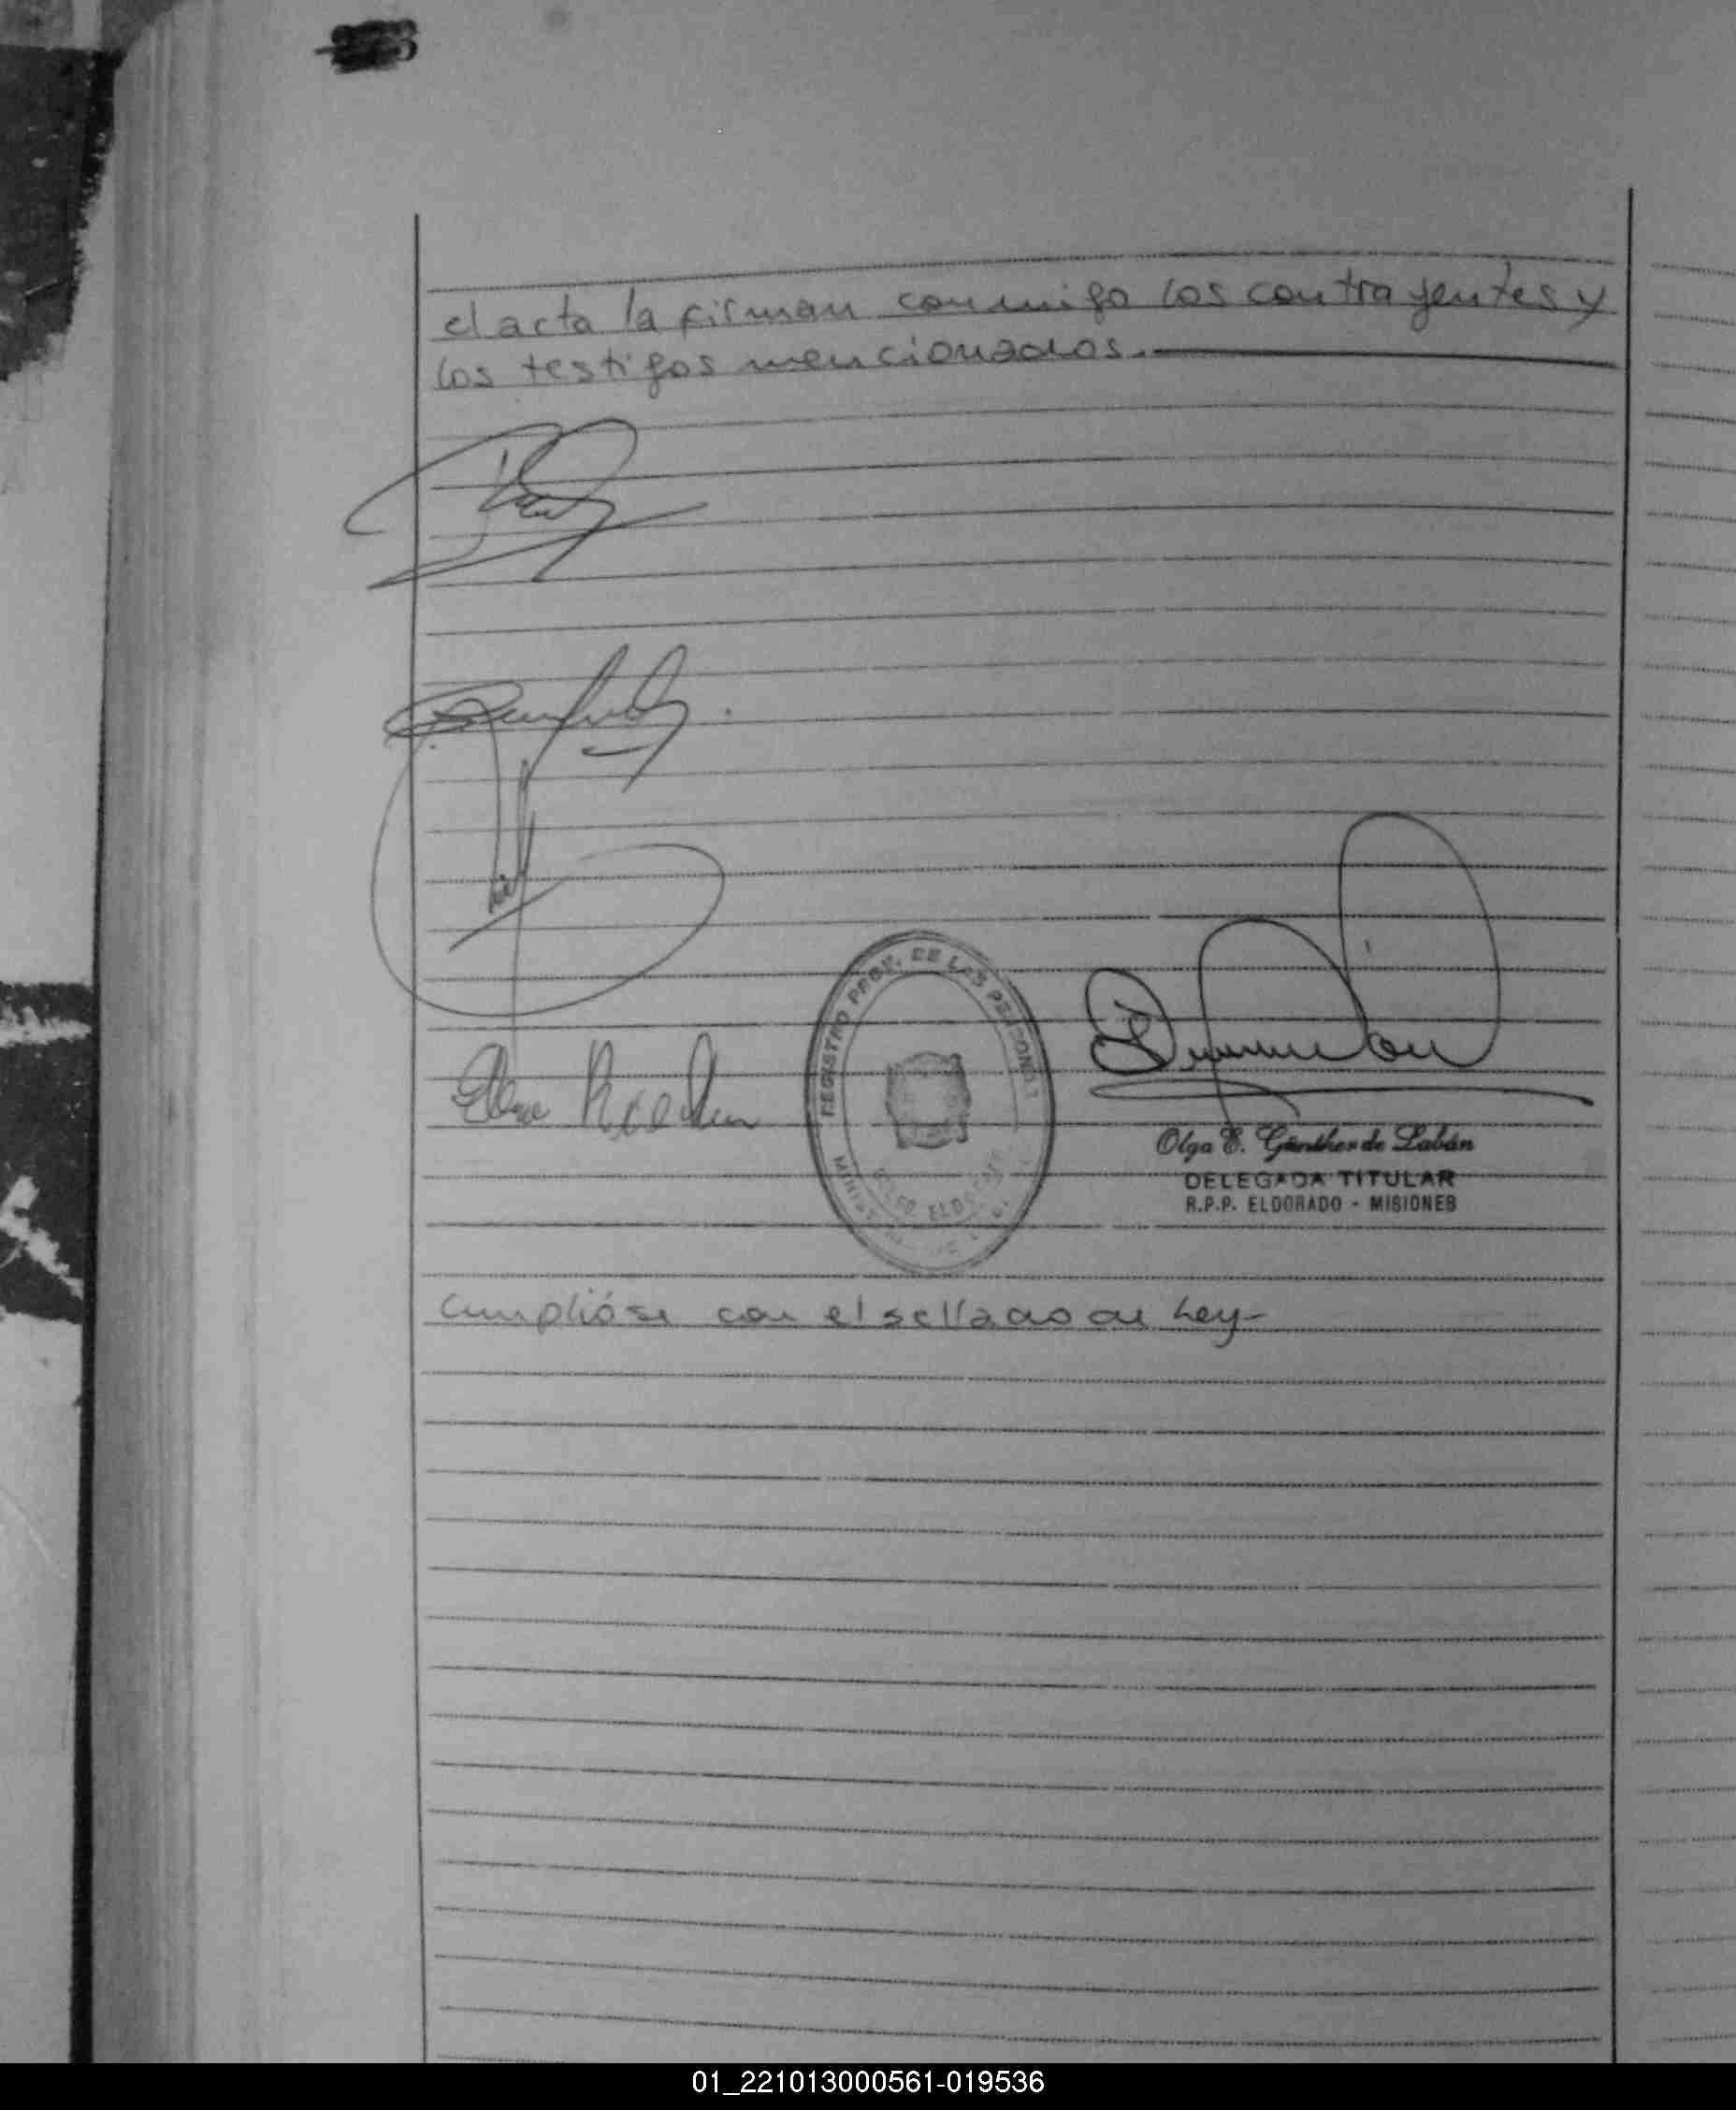 el acta la firman conmigo los contrayentes y
los testigos mencionados.
REGISTRO PROV. DE LAS PERSONAS
Olga E. Günther de Labán
DELEGADA TITULAR
R.P.P. ELDORADO - MISIONES
Cumplióse con el sellado de Ley-
01_221013000561-019536